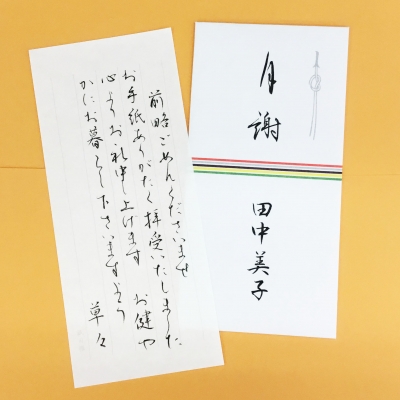 月謝
田中美子
前略ごめんくださいませ
お手紙ありがたく拝受いたしました
心よりお礼申し上げます お健や
かにお暮らし下さいますよう
草々